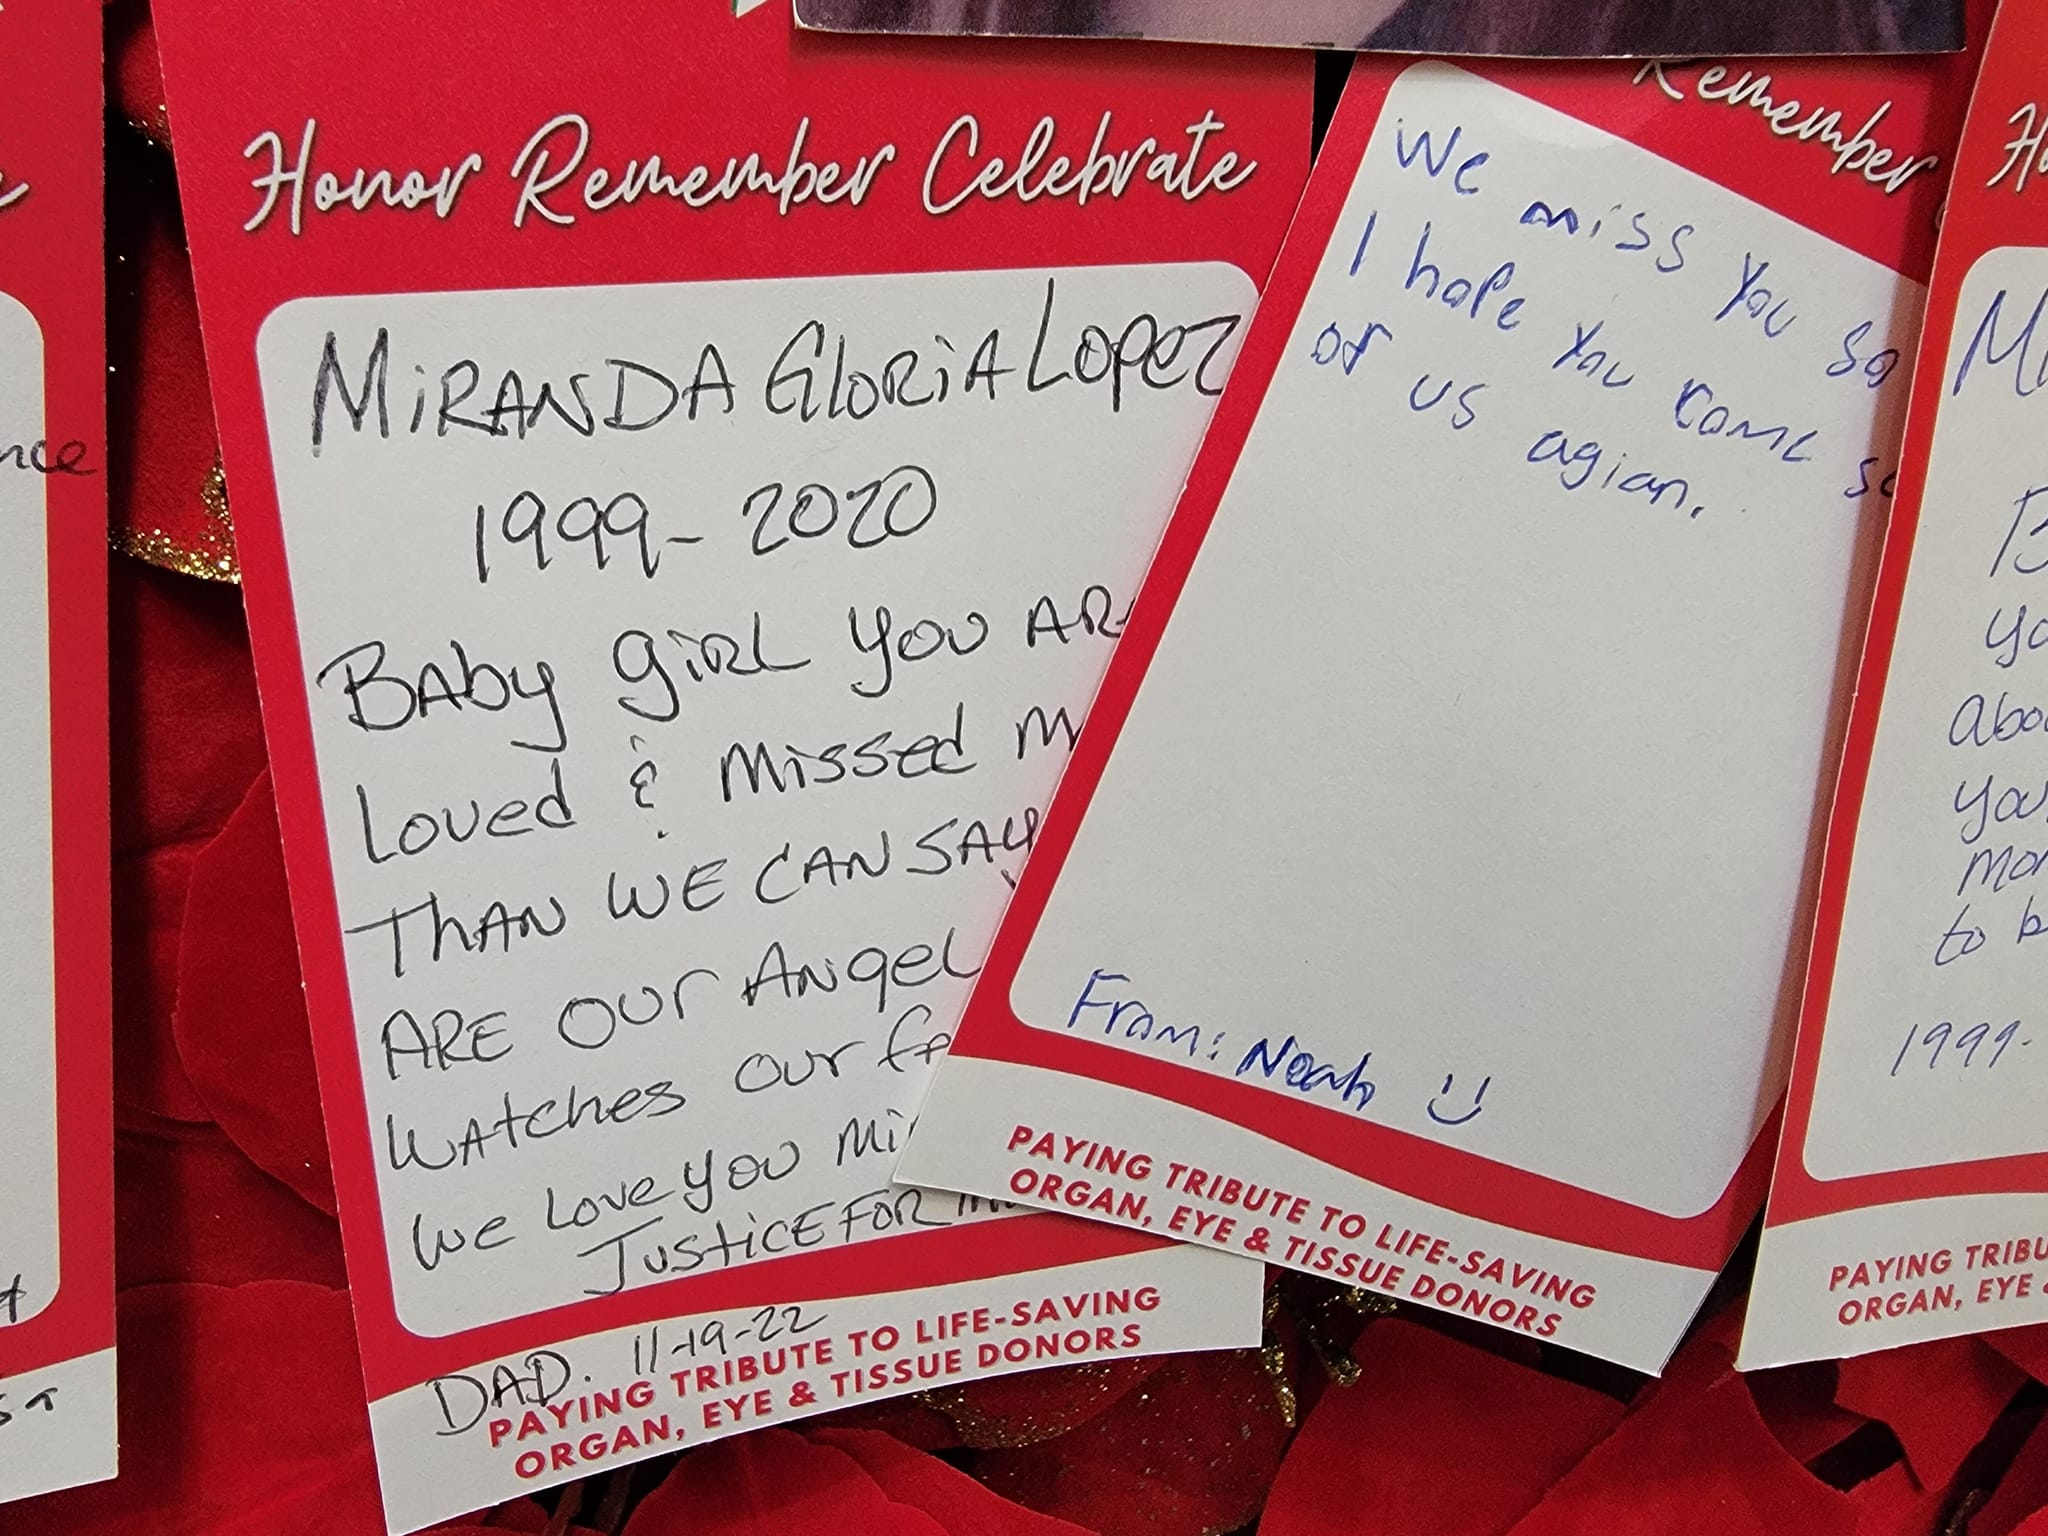 Honor Remember Celebrate
MiRANDA GloRiA Lopez
1999-2020
BAby girl you AR
Loved & Missed M
ThAN WE CAN SAy
ARE our Angel
WAtches our fa
We Love you Mi
JUSTICE FOR
DAD. 11-19-22
PAYING TRIBUTE TO LIFE-SAVING
ORGAN, EYE & TISSUE DONORS
Remember
We miss you so
I hope you come
of us agian.
From: Noah
PAYING TRIBUTE TO LIFE-SAVING
ORGAN, EYE & TISSUE DONORS
Ho
Mi
B
yo
abo
you
mor
to b
1999-
PAYING TRIBU
ORGAN, EYE &
nce